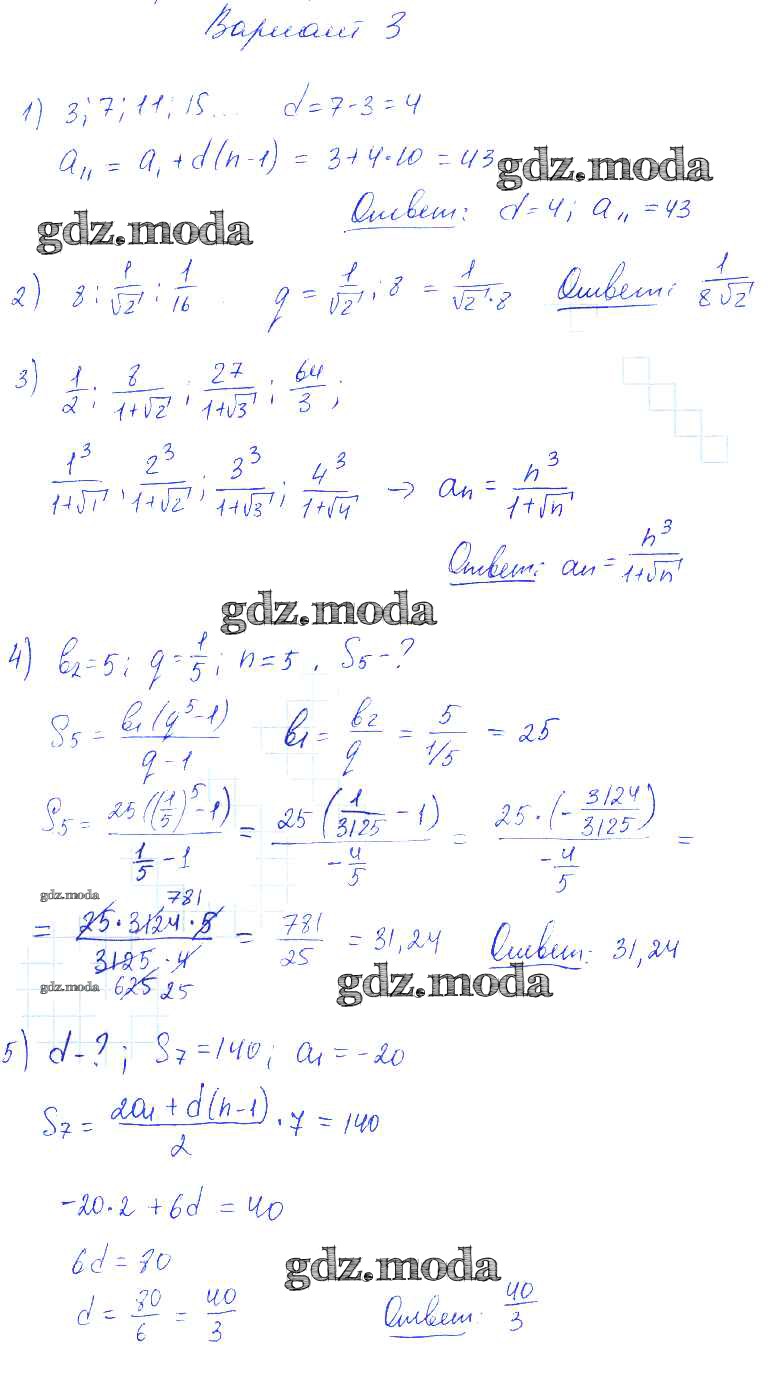 Вариант 3
1) 3; 7; 11; 15... d = 7 - 3 = 4
a₁₁ = a₁ + d(n-1) = 3 + 4·10 = 43
gdz.moda
Ответ: d = 4; a₁₁ = 43
gdz.moda
2) 8; 1/√2; 1/16 q = 1/√2 : 8 = 1/(√2·8) Ответ: 1/(8√2)
3) 1/2; 8/(1+√2); 27/(1+√3); 64/3;
1³/(1+√1); 2³/(1+√2); 3³/(1+√3); 4³/(1+√4) → an = n³/(1+√n)
Ответ: an = n³/(1+√n)
gdz.moda
4) b₂ = 5; q = 1/5; n = 5. S₅ - ?
S₅ = b₁(q⁵-1)/(q-1) b₁ = b₂/q = 5/(1/5) = 25
S₅ = 25((1/5)⁵-1)/(1/5 - 1) = 25(1/3125 - 1)/(-4/5) = 25·(-3124/3125)/(-4/5) =
gdz.moda 781
= 25·3124·5/(3125·4) = 781/25 = 31,24 Ответ: 31,24
gdz.moda 625 25 gdz.moda
5) d - ?; S₇ = 140; a₁ = -20
S₇ = (2a₁ + d(n-1))/2 · 7 = 140
-20·2 + 6d = 40
6d = 80
gdz.moda
d = 80/6 = 40/3 Ответ: 40/3